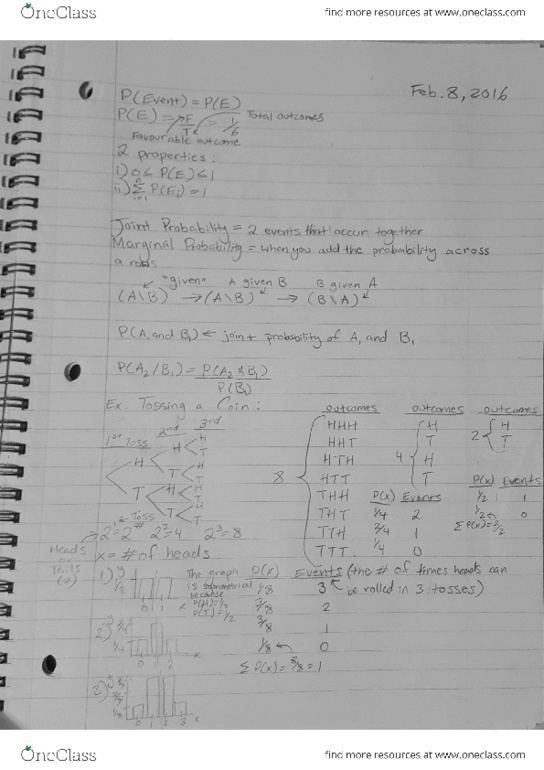 OneClass
find more resources at www.oneclass.com
Feb. 8, 2016
P(Event) = P(E)
P(E) = F/T = 1/6 Total outcomes
Favourable outcome
2 properties:
i) 0 ≤ P(E) ≤ 1
ii) Σ P(Ei) = 1
Joint Probability = 2 events that occur together
Marginal Probability = when you add the probability across
a rows
"given" A given B B given A
(A\B) → (A\B) → (B\A)
P(A, and B1) ← joint probability of A, and B1
P(A2/B1) = P(A2 & B1)
P(B1)
Ex. Tossing a Coin:
1st Toss 2nd 3rd
H T
H T H T
H T H T H T H T
Toss
2^1 = 2 2^2 = 4 2^3 = 8
Heads or Tails (2)
x = # of heads
8
outcomes
HHH
HHT
HTH
HTT
THH
THT
TTH
TTT
outcomes
4
H
T
H
T
outcomes
2
H
T
P(x) Events
1/4 2
3/4 1
1/4 0
P(x) Events
1/2 1
1/2 0
Σ P(x) = 2/2
1) y
1/2
0 1 x
The graph
is symmetrical
because
P(H) = 1/2
P(T) = 1/2
P(x) Events (the # of times heads can
be rolled in 3 tosses)
1/8 3
3/8 2
3/8 1
1/8 0
Σ P(x) = 8/8 = 1
2)
1/4
0 2 x
3)
1/8
0 1 2 3 x
OneClass
find more resources at www.oneclass.com